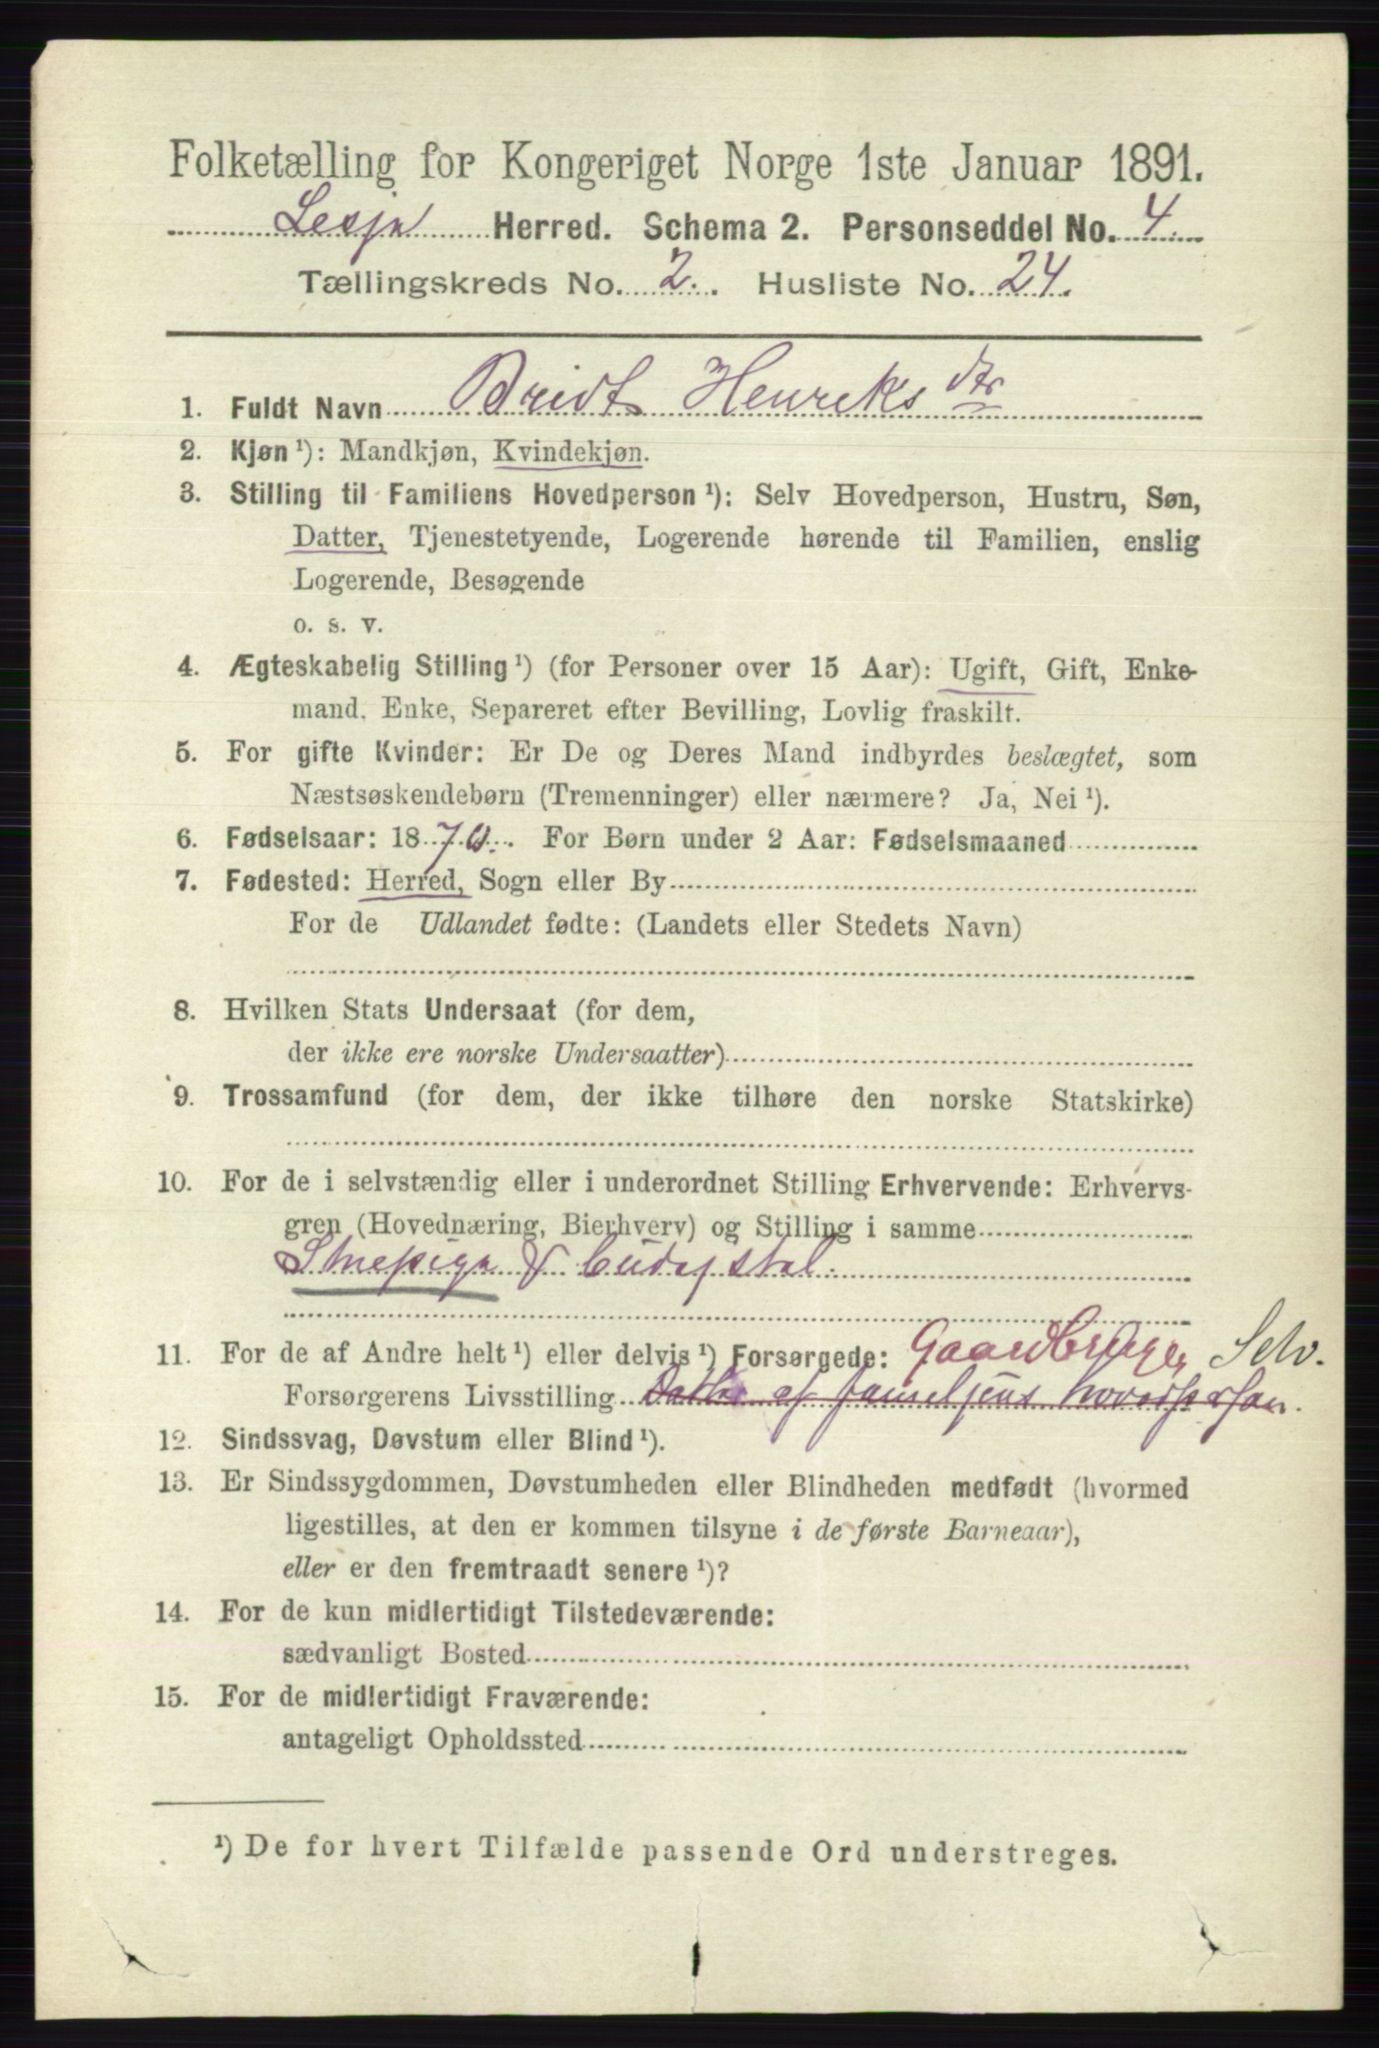 Folketælling for Kongeriget Norge 1ste Januar 1891.
Lesje Herred. Schema 2. Personseddel No. 4.
Tællingskreds No. 2. Husliste No. 24.
1. Fuldt Navn Bridt Henreks dtr
2. Kjøn ¹): Mandkjøn, Kvindekjøn.
3. Stilling til Familiens Hovedperson ¹): Selv Hovedperson, Hustru, Søn,
Datter, Tjenestetyende, Logerende hørende til Familien, enslig
Logerende, Besøgende
o. s. v.
4. Ægteskabelig Stilling ¹) (for Personer over 15 Aar): Ugift, Gift, Enke-
mand, Enke, Separeret efter Bevilling, Lovlig fraskilt.
5. For gifte Kvinder: Er De og Deres Mand indbyrdes beslægtet, som
Næstsøskendebørn (Tremenninger) eller nærmere? Ja, Nei ¹).
6. Fødselsaar: 1870. For Børn under 2 Aar: Fødselsmaaned
7. Fødested: Herred, Sogn eller By
For de Udlandet fødte: (Landets eller Stedets Navn)
8. Hvilken Stats Undersaat (for dem,
der ikke ere norske Undersaatter)
9. Trossamfund (for dem, der ikke tilhøre den norske Statskirke)
10. For de i selvstændig eller i underordnet Stilling Erhvervende: Erhvervs-
gren (Hovednæring, Bierhverv) og Stilling i samme
&
11. For de af Andre helt ¹) eller delvis ¹) Forsørgede: Gaardbruger Selv.
Forsørgerens Livsstilling Datter af familjens hovedperson.
12. Sindssvag, Døvstum eller Blind ¹).
13. Er Sindssygdommen, Døvstumheden eller Blindheden medfødt (hvormed
ligestilles, at den er kommen tilsyne i de første Barneaar),
eller er den fremtraadt senere ¹)?
14. For de kun midlertidigt Tilstedeværende:
sædvanligt Bosted
15. For de midlertidigt Fraværende:
antageligt Opholdssted
¹) De for hvert Tilfælde passende Ord understreges.